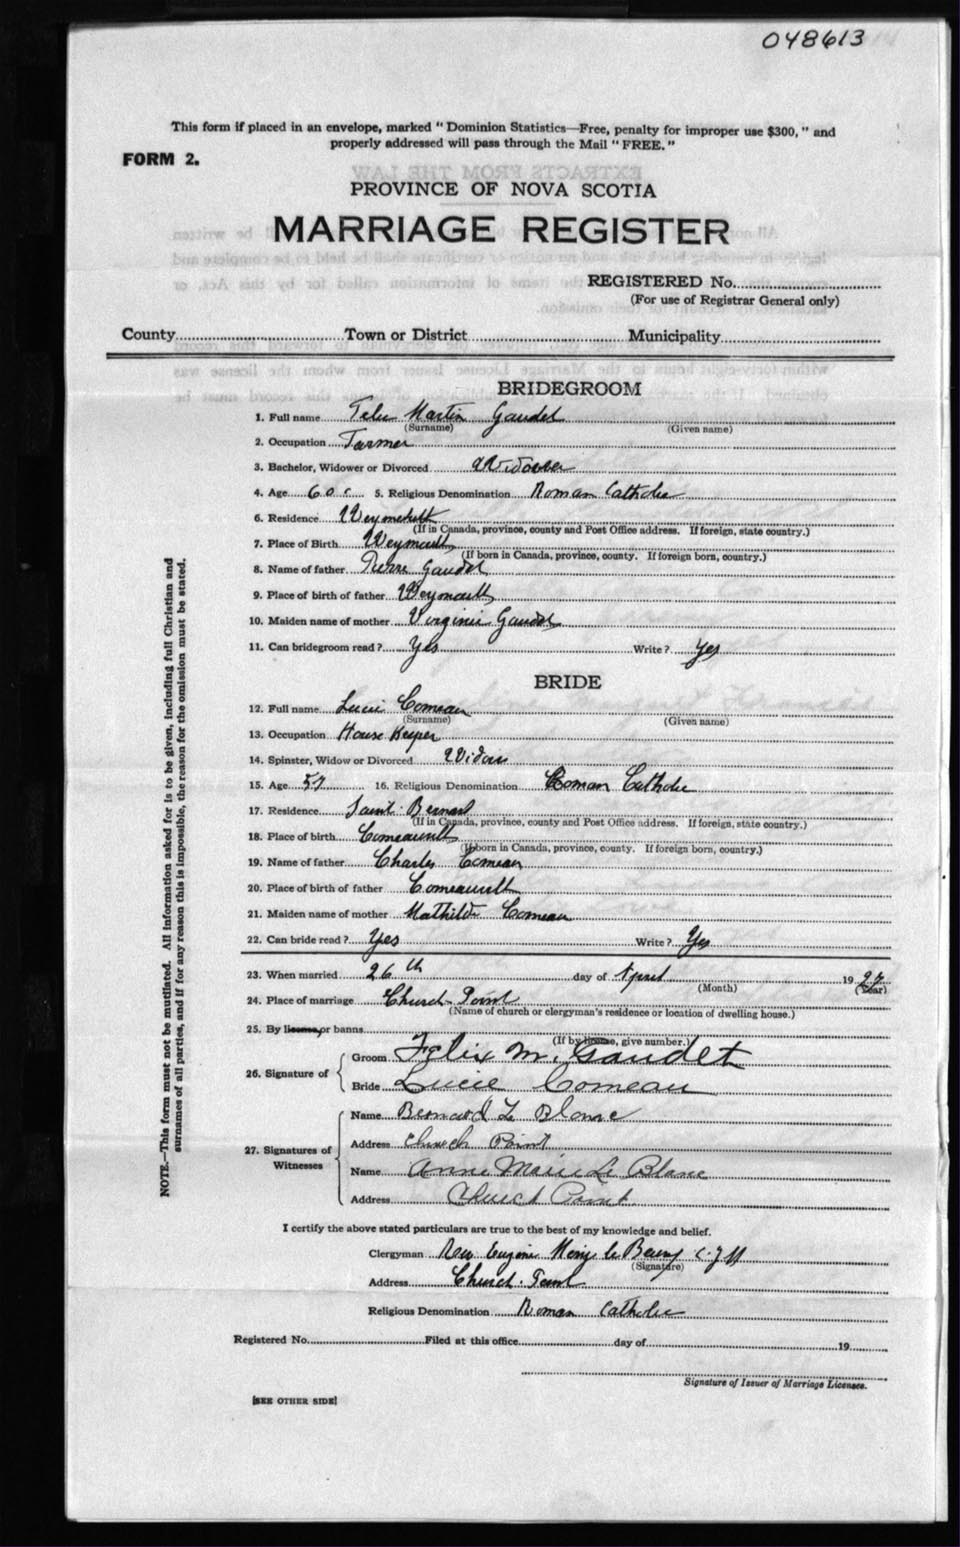 048613
This form if placed in an envelope, marked " Dominion Statistics—Free, penalty for improper use $300, " and
properly addressed will pass through the Mail " FREE. "
FORM 2.
PROVINCE OF NOVA SCOTIA
MARRIAGE REGISTER
REGISTERED No.
(For use of Registrar General only)
County Town or District Municipality
BRIDEGROOM
1. Full name Felix Martin Gaudet
(Surname) (Given name)
2. Occupation Farmer
3. Bachelor, Widower or Divorced Widower
4. Age 60 5. Religious Denomination Roman Catholic
6. Residence Weymouth
(If in Canada, province, county and Post Office address. If foreign, state country.)
7. Place of Birth Weymouth
(If born in Canada, province, county. If foreign born, country.)
8. Name of father Pierre Gaudet
9. Place of birth of father Weymouth
10. Maiden name of mother Virginie Gaudet
11. Can bridegroom read? Yes Write? Yes
BRIDE
12. Full name Lucie Comeau
(Surname) (Given name)
13. Occupation House Keeper
14. Spinster, Widow or Divorced Widow
15. Age 57 16. Religious Denomination Roman Catholic
17. Residence Saint Bernard
(If in Canada, province, county and Post Office address. If foreign, state country.)
18. Place of birth Comeauville
(If born in Canada, province, county. If foreign born, country.)
19. Name of father Charles Comeau
20. Place of birth of father Comeauville
21. Maiden name of mother Mathilde Comeau
22. Can bride read? Yes Write? Yes
23. When married 26th day of April 1927
(Month) (Year)
24. Place of marriage Church Point
(Name of church or clergyman's residence or location of dwelling house.)
25. By license, or banns
(If by license, give number.)
26. Signature of
Groom Felix M. Gaudet
Bride Lucie Comeau
27. Signatures of Witnesses
Name Bernard Le Blanc
Address Church Point
Name Anne Marie Le Blanc
Address Church Point
I certify the above stated particulars are true to the best of my knowledge and belief.
Clergyman Rev Eugène
(Signature)
Address Church Point
Religious Denomination Roman Catholic
Registered No. Filed at this office day of 19
Signature of Issuer of Marriage Licenses.
[SEE OTHER SIDE]
NOTE.—This form must not be mutilated. All information asked for is to be given, including full Christian and
surnames of all parties, and if for any reason this is impossible, the reason for the omission must be stated.